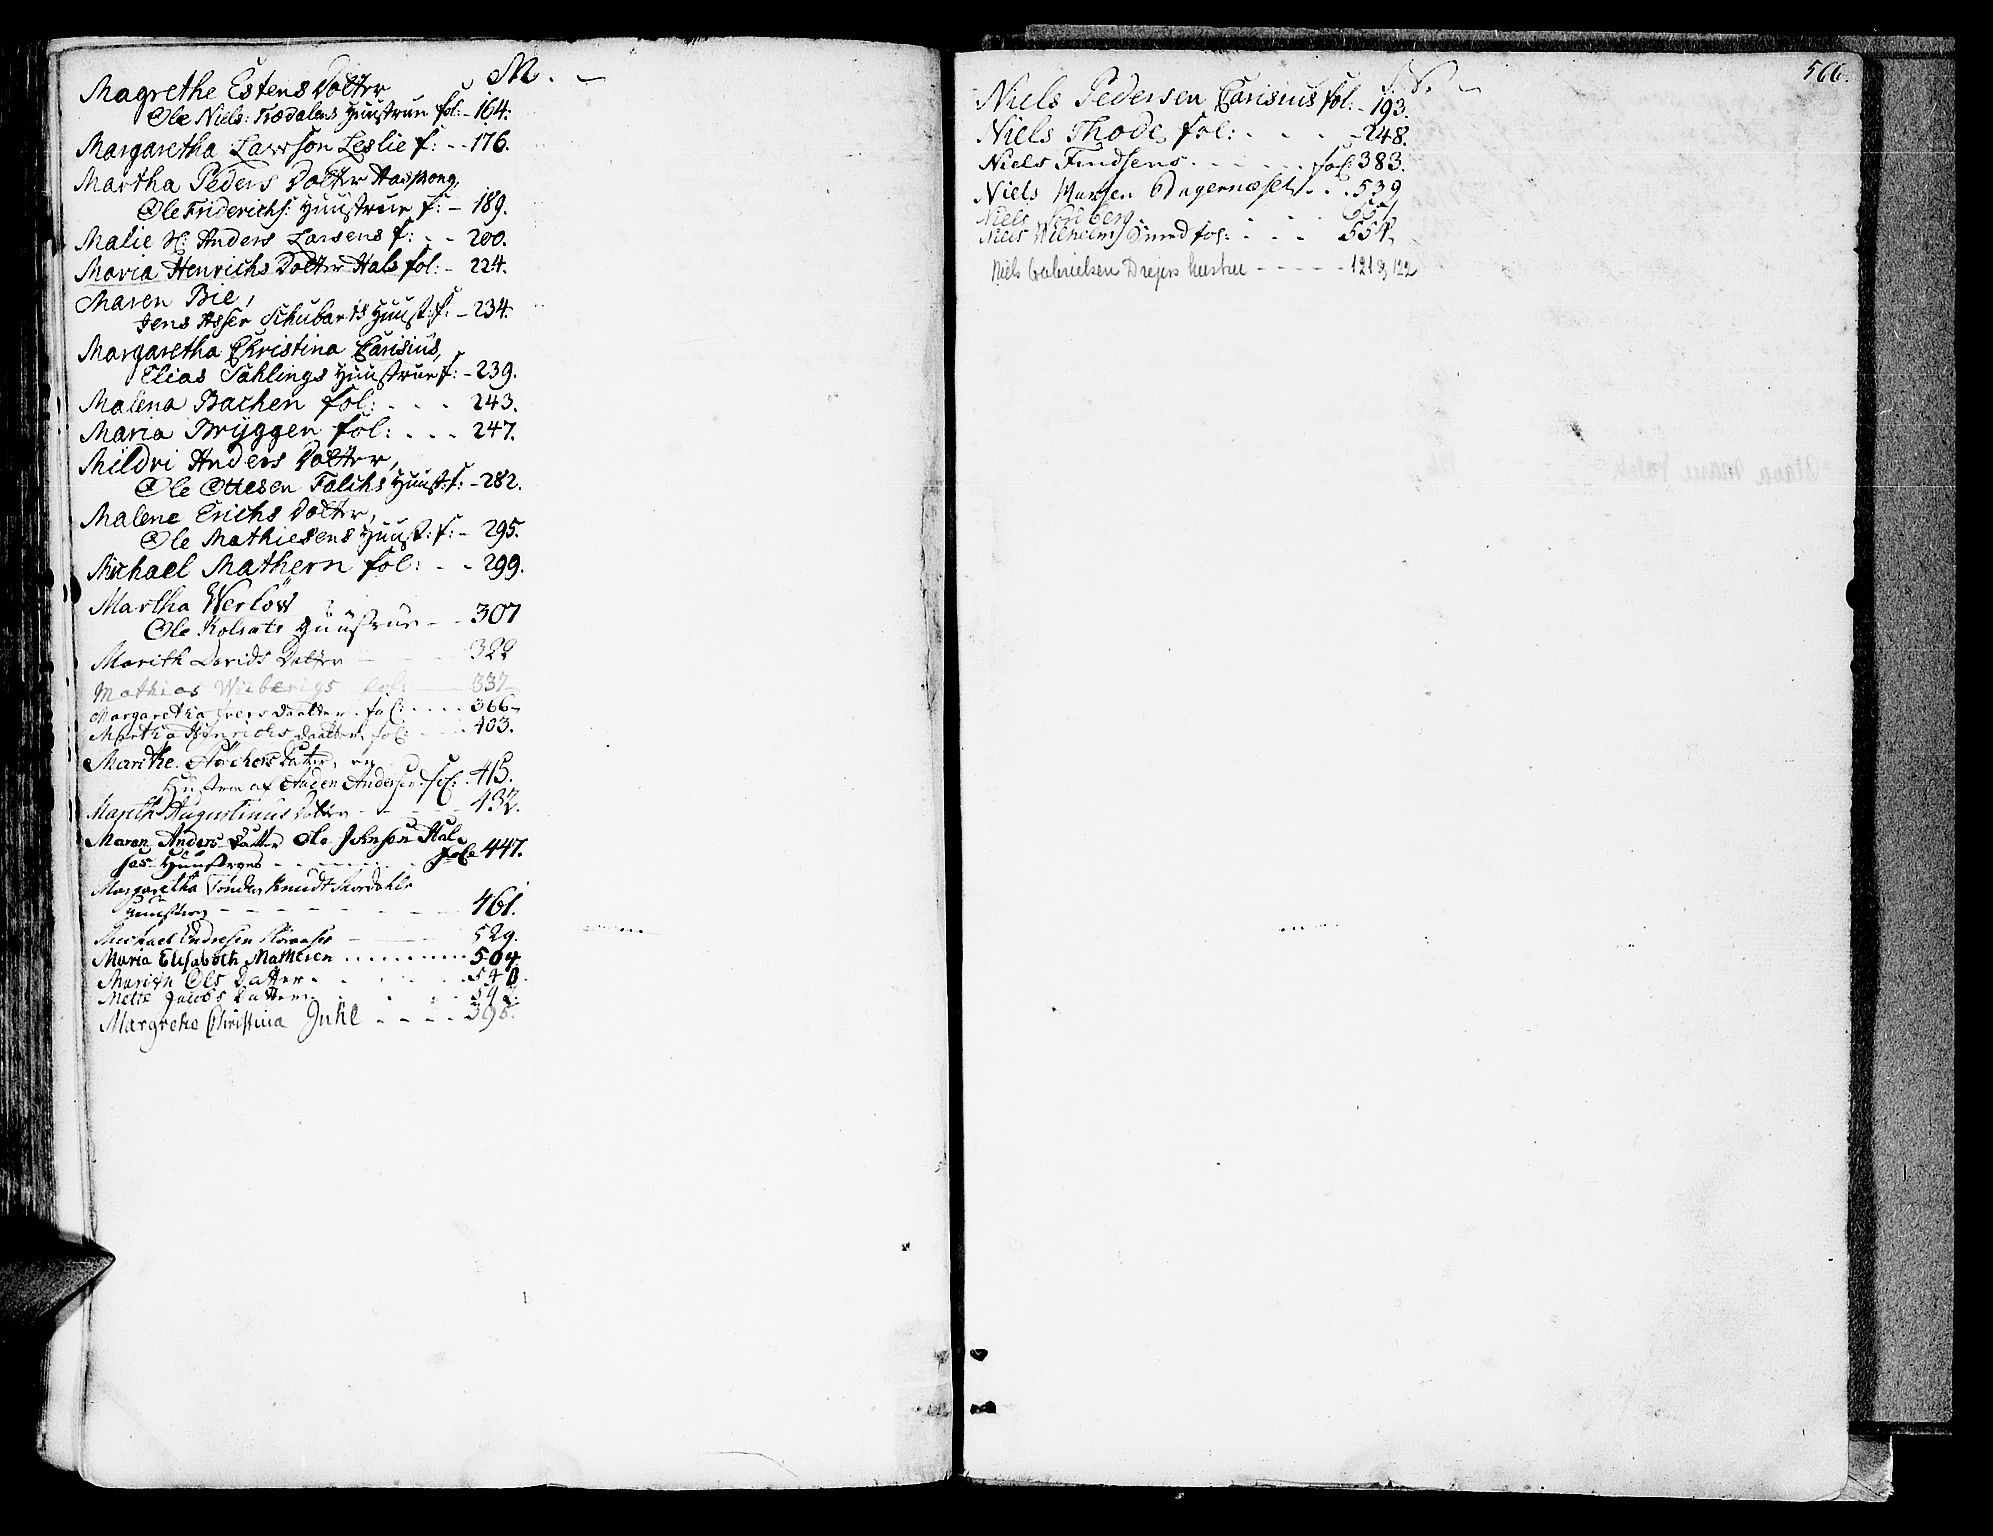 M.
Magrethe Estens Dotter
Ole Niels: Trædalens Huustrue fol: - 164:
Margaretha Lawson Leslie f: - - 176.
Martha Peders Dotter
Ole Friderichs: Huustrue f: - 189.
Malie Anders Larsens f: - - 200.
Maria Henrichs Dotter Hals fol: - 224.
Maren Bie,
Jens Asser Schubarts Huust: f: - 234.
Margaretha Christina Carisius,
Elias Sahlings Huustrue f: - 239.
Malena Bachen fol: . . . 243.
Maria Bryggen fol: . . . 247.
Mildri Anders Dotter,
Ole Ottesen Falchs Huust: f: - 282.
Malene Erichs Dotter,
Ole Mathiesens Huust: f: - 295.
Michael Mathern fol: - - 299.
Martha Werlow
Ole Kolsats Huustrue - - 307
Marith Davids Dotter - - 322
Mathias Wiebergs fol: - 337
Margaretha Ivers Daatter. fol: . . . . 366
Martha Hinrichs Daatter. fol: . . . 403.
Marithe Datter, en
Hustru af Auden Andersen. fol: . 415.
Marith Augustinus Dotter - - 432.
Maren Anders Datter Ole Johnsen Hal-
ses Huustroes - - - fol 447.
Margaretha Tønder, Knudt
Huustroe - - - - 461.
Michael Endresen - - 529.
Maria Elisabeth Mathesen . . . . . . 504
Marith Ols Datter . . . . 540
Mette Jacobs Datter . . . 542.
Margrethe Christina Juhl . . . . 395.
566.
N.
Niels Pedersen Carisius fol: - 193.
Niels Thode fol: . . . - 248.
Niels Findsens . . . . . fol 383.
Niels Morsen . . 539
Niels Nordberg . . . 551
Niels Wilhelms Smed fol: . . . 554.
Niels Gabrielsen Drejers hustru - - - - - 121 & 122